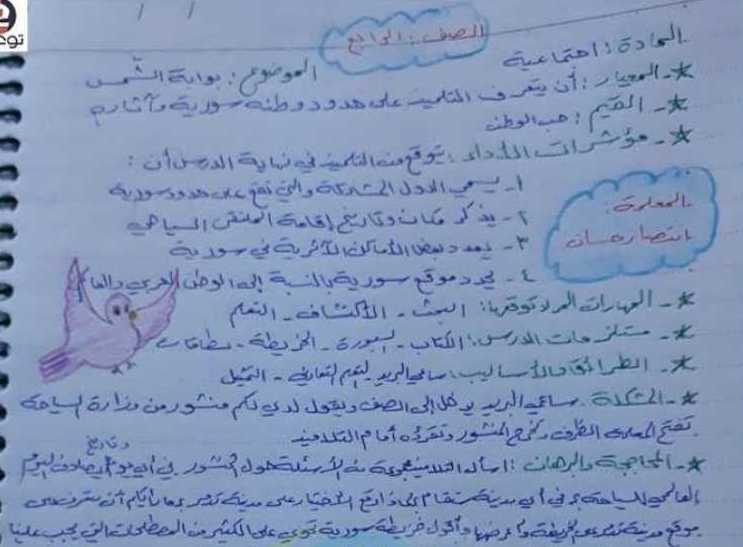 توع
الصف: الرابع
المادة: اجتماعية
الموضوع: بوابة الشمس
* - المعيار: أن يتعرف التلميذ على حدود وطنه سورية وآثارها
* - القيم: حب الوطن
* - مؤشرات الأداء: يتوقع من التلميذ في نهاية الدرس أن:
١- يسمي الدول المشتركة والتي تقع على حدود سورية
٢- يذكر مكان وتاريخ إقامة الملتقى السياحي
٣- يعدد بعض الأماكن الأثرية في سورية
٤- يحدد موقع سورية بالنسبة إلى الوطن العربي والعالم
المعلمة:
انتصار حسان
* - المهارات المراد توقعها: البحث - الاكتشاف - التعلم
* - مستلزمات الدرس: الكتاب - السبورة - الخريطة - بطاقات
* - الطرائق والأساليب: ساعي البريد - التعلم التعاوني - التمثيل
* - المشكلة: ساعي البريد يدخل إلى الصف ويقول لدي لكم منشور من وزارة السياحة
تفتح المعلمة الظرف وتخرج المنشور وتقرؤه أمام التلاميذ
* - المحاججة والبرهان: أسأل التلاميذ مجموعة من الأسئلة حول المنشور في أي يوم وتاريخ يصادف اليوم
العالمي للسياحة؟ في أي مدينة ستقام لماذا وقع الاختيار على مدينة تدمر
موقع مدينة تدمر على الخريطة وأعرضها وأقول خريطة سورية تحوي على الكثير من المصطلحات التي يجب علينا